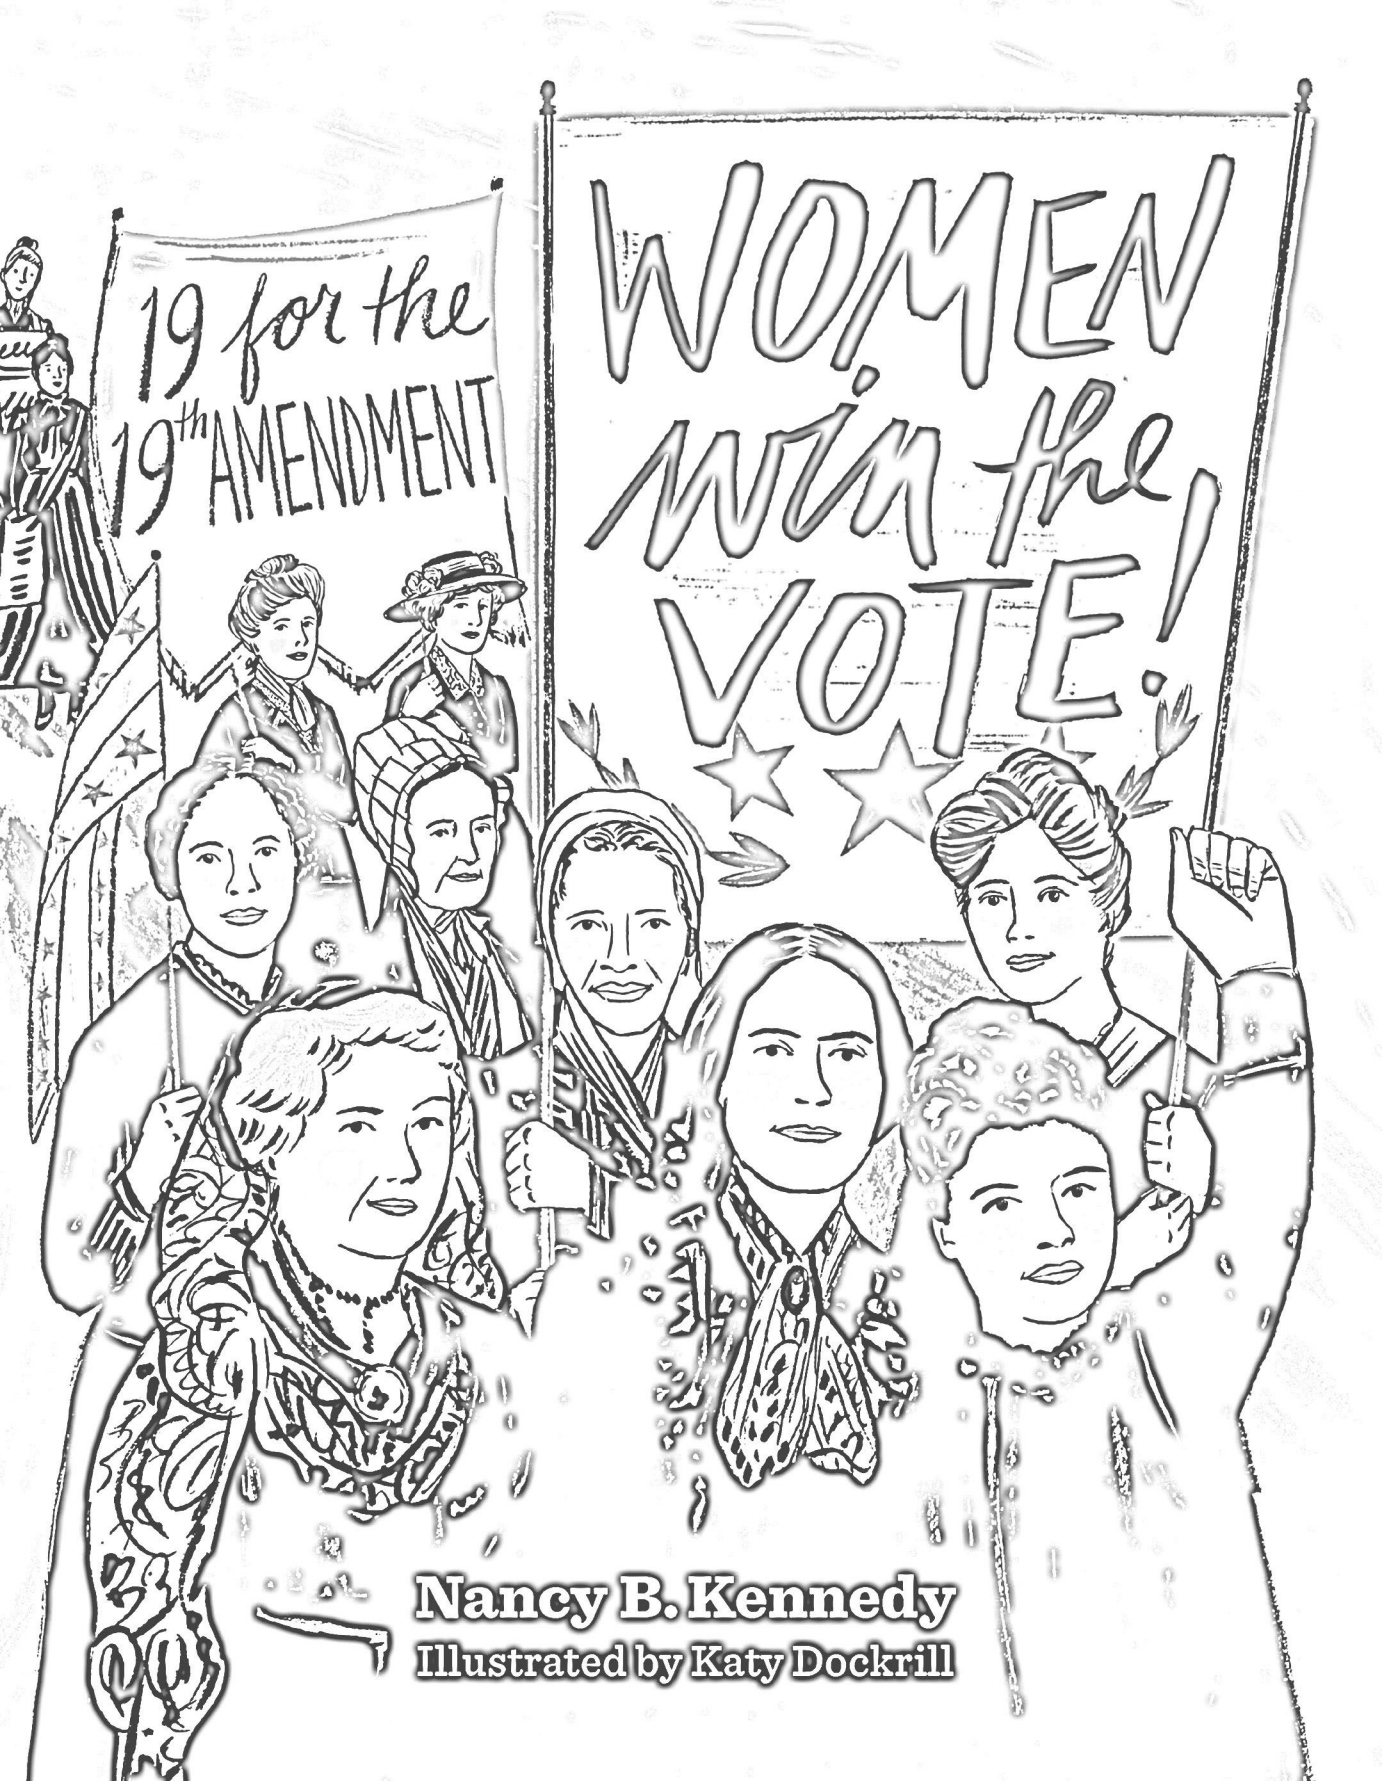 19 for the
19th AMENDMENT
WOMEN
win the
VOTE!
Nancy B. Kennedy
Illustrated by Katy Dockrill